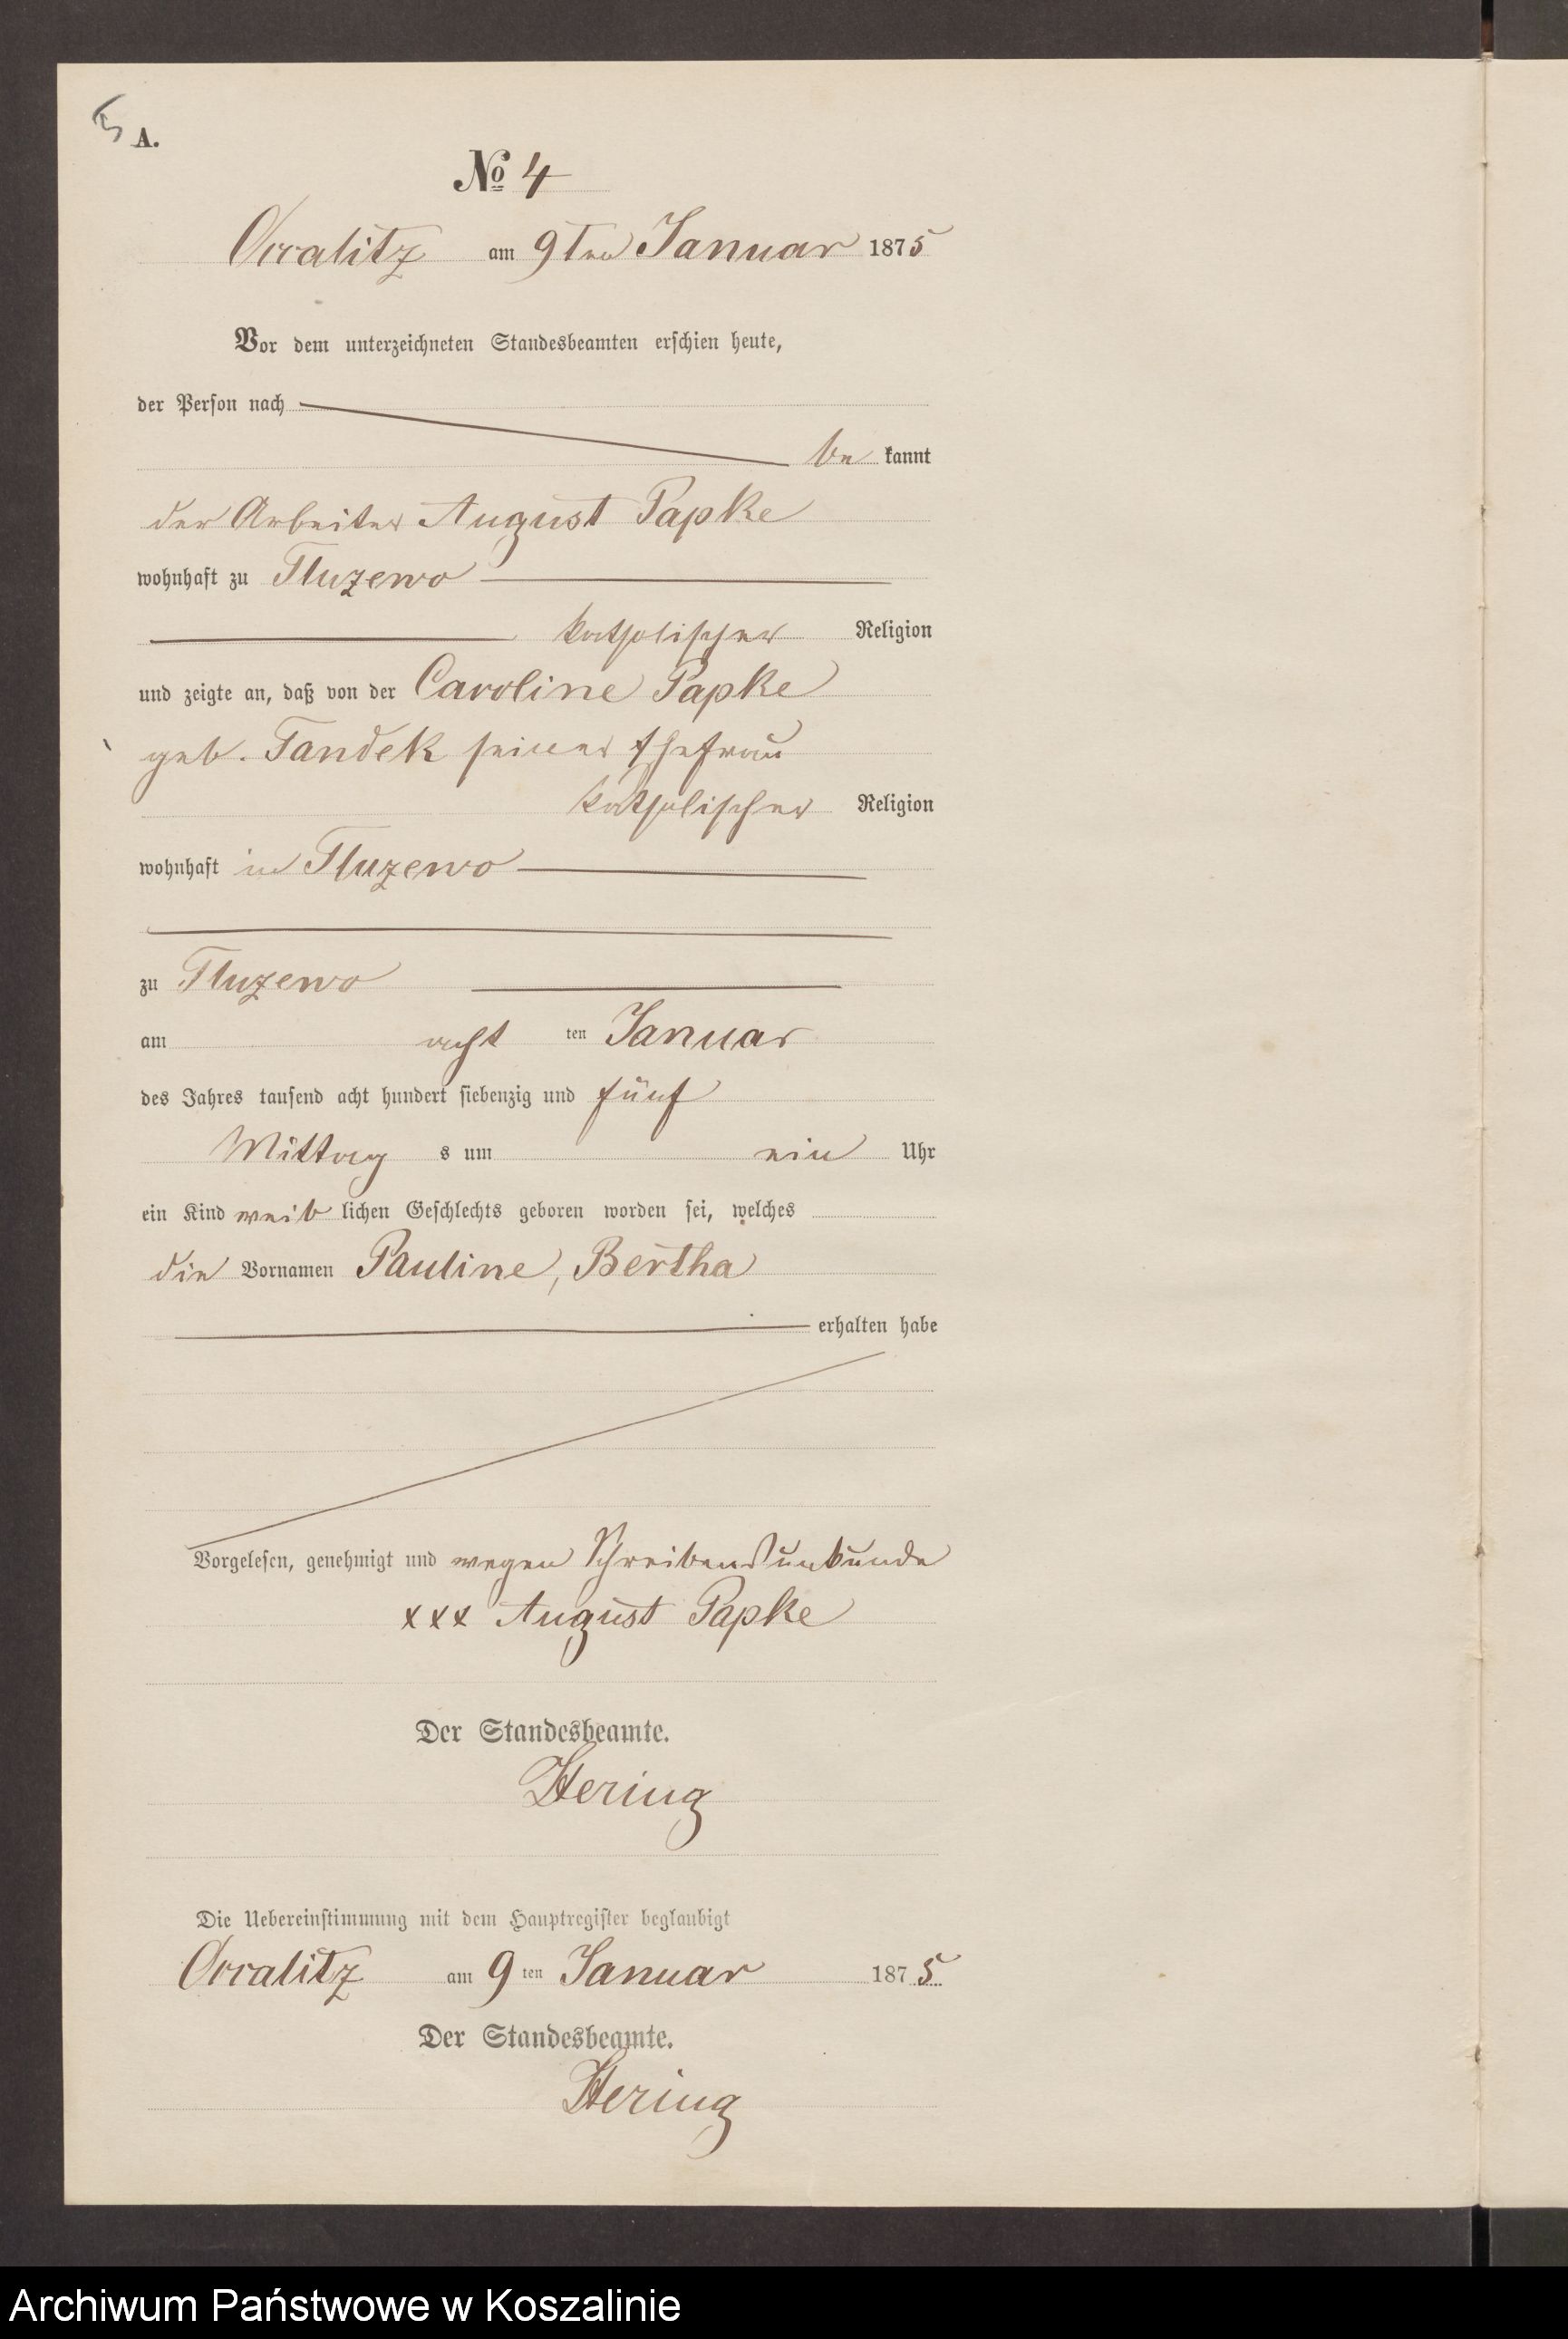 A.
№ 4
Occalitz am 9ten Januar 1875
Vor dem unterzeichneten Standesbeamten erschien heute,
der Person nach
be kannt
der Arbeiter August Papke
wohnhaft zu Tluzewo
katholischer Religion
und zeigte an, daß von der Caroline Papke
geb. Tandek seiner Ehefrau
katholischer Religion
wohnhaft in Tluzewo
zu Tluzewo
am acht ten Januar
des Jahres tausend acht hundert siebenzig und fünf
Mittag s um ein Uhr
ein Kind weib lichen Geschlechts geboren worden sei, welches
die Vornamen Pauline, Bertha
erhalten habe
Vorgelesen, genehmigt und wegen Schreibensunkunde
xxx August Papke
Der Standesbeamte.
Hering
Die Uebereinstimmung mit dem Hauptregister beglaubigt
Occalitz am 9 ten Januar 187 5.
Der Standesbeamte.
Hering
Archiwum Państwowe w Koszalinie